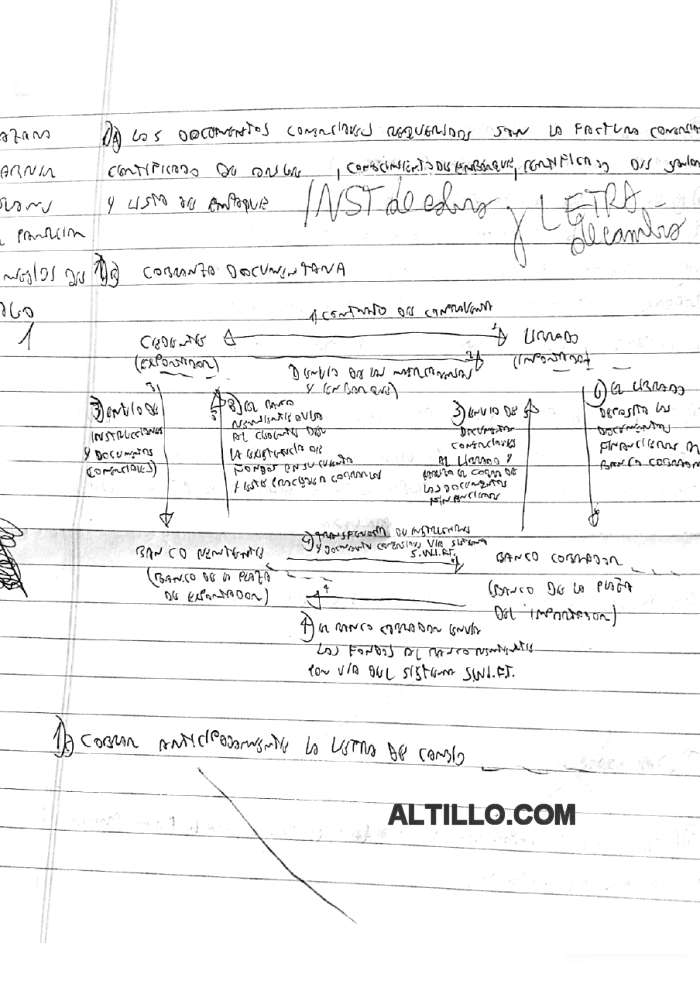 1A) LOS DOCUMENTOS COMERCIALES REQUERIDOS SON LA FACTURA COMERCIAL
CERTIFICADO DE ORIGEN, CONOCIMIENTO DE EMBARQUE, CERTIFICADO DE
Y LISTA DE EMPAQUE INST de cobro y LETRA de cambio
1B) COBRANZA DOCUMENTARIA
1
1) CONTRATO DE COMPRAVENTA
CEDENTE LIBRADO
(EXPORTADOR) (IMPORTADOR)
2) ENVIO DE LAS MERCADERIAS
Y (EMBARQUE)
3) ENVIO DE
INSTRUCCIONES
Y DOCUMENTOS
COMERCIALES)
8) EL BANCO
REMITENTE AVISA
AL CEDENTE DE
LA EXISTENCIA DE
FONDOS EN SU CUENTA
Y ESTE PROCEDE A COBRARLOS
5) ENVIO DE
DOCUMENTOS
COMERCIALES
AL LIBRADO Y
DE
LOS DOCUMENTOS
FINANCIEROS
6) EL LIBRADO
DEPOSITA LOS
DOCUMENTOS
FINANCIEROS AL
BANCO COBRADOR
4) DE INSTRUCCIONES
Y DOCUMENTOS COMERCIALES VIA SISTEMA
S.W.I.F.T.
BANCO REMITENTE BANCO COBRADOR
(BANCO DE LA PLAZA (BANCO DE LA PLAZA
DE EXPORTADOR) DEL IMPORTADOR)
7) EL BANCO COBRADOR ENVIA
LOS FONDOS AL BANCO REMITENTE
POR VIA DEL SISTEMA S.W.I.F.T.
1C) COBRAR ANTICIPADAMENTE LA LETRA DE CAMBIO
ALTILLO.COM